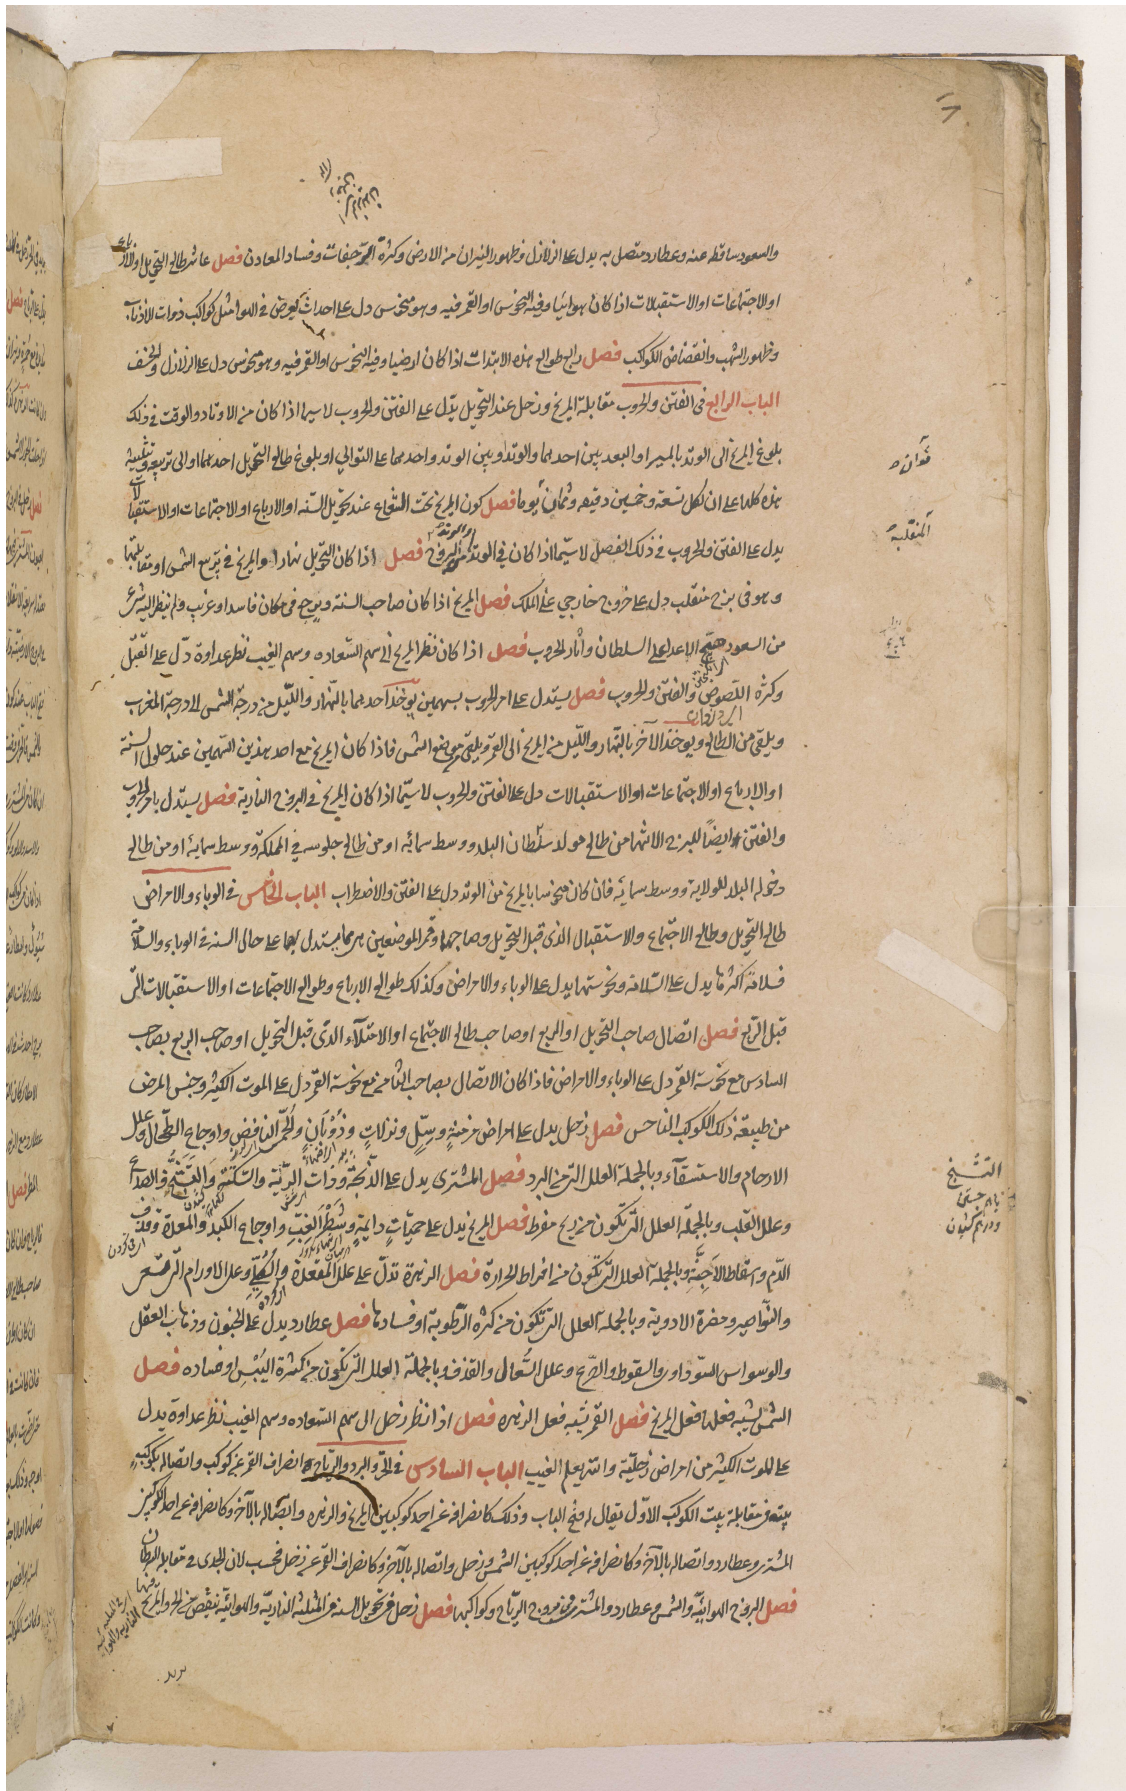 ١٨
والسعود ساقطه عنه وعطارد متصل به يدل على الزلازل وظهور النيران من الارض وكثرة الرجفات وفساد المعادن فصل عاشر طالع التحويل او الارباع
او الاجتماعات او الاستقبالات اذا كان هوائيا وفيه النحوس او القمر فيه وهو منحوس دل على احداث تعرض في الهوا مثل كواكب ذوات الاذناب
وظهور الشهب وانقضاض الكواكب فصل رابع طوالع هذه الابتدات اذا كان ارضيا وفيه النحوس او القمر فيه وهو منحوس دل على الزلازل والخسف
الباب الرابع في الفتن والحروب مقابلة المريخ وزحل عند التحويل يدل على الفتن والحروب لا سيما اذا كان من الاوتاد والوقت في ذلك
بلوغ المريخ الى الوتد بالمسير او البعد بين احدهما والوتد او بين الوتد واحدهما على التوالي او بلوغ طالع التحويل احدهما او الى تربيعه وتثليثه
هذه كلها على ان لكل تسعة وخمسين دقيقه وثمان يوما فصل كون المريخ تحت الشعاع عند تحويل السنه او الارباع او الاجتماعات او الاستقبالات
يدل على الفتن والحروب في ذلك الفصل لا سيّما اذا كان في الوتد فصل اذا كان التحويل نهارا والمريخ في تربيع الشمس او مقابلتها
وهو في برج منقلب دل على خروج خارجي على الملك فصل المريخ اذا كان صاحب السنة ويرجع في مكان فاسد او غريب ولم ينظر اليه شيء
من السعود هيّج الاعدا على السلطان واثار الحروب فصل اذا كان نظر المريخ الى سهم السعاده وسهم الغيب نظر عداوة دلّ على القتل
وكثرة اللصوص والفتن والحروب فصل يستدل على امر الحروب بسهمين يوخذ احدهما بالنهار والليل من درجة الشمس الى درجة المغرب
ويلقى من الطالع ويوخذ الآخر بالنهار والليل من المريخ الى القمر ويلقى من موضع الشمس فاذا كان المريخ مع احد هذين السهمين عند حلول السنة
او الارباع او الاجتماعات او الاستقبالات دل على الفتن والحروب لا سيّما اذا كان المريخ في البروج النارية فصل يستدل بامر الحروب
والفتن ايضاً للبرج الانتها من طالع مولد سلطان البلد ووسط سمائه او من طالع جلوسه في المملكة ووسط سمايه او من طالع
دخوله البلد للولاية ووسط سمايه فان كان منحوسا بالمريخ من الوتد دل على الفتن والاضطراب الباب الخامس في الوباء والامراض
طالع التحويل وطالع الاجتماع والاستقبال الذى قبل التحويل وصاحبهما وقمر الموضعين يستدل بهما على حال السنه في الوباء والسلامة
فسلامة اكثرها يدل على السلامة ونحوستها يدل على الوباء والامراض وكذلك طوالع الارباع وطوالع الاجتماعات او الاستقبالات التي
قبل الربع فصل اتصال صاحب التحويل او الربع او صاحب طالع الاجتماع او الامتلاء الذى قبل التحويل او صاحب الربع بصاحب
السادس مع نحوسة القمر دل على الوباء والامراض فاذا كان الاتصال بصاحب الثامن مع نحوسة القمر دل على الموت الكثير وجنس المرض
من طبيعة ذلك الكوكب الناحس فصل زحل يدل على امراض مزمنةٍ وسِلٍّ ونزلاتٍ وذَوَبَانٍ والحُمّى النافض واوجاع الطّحال وعلل
الارحام والاستسقآء وبالجملة العلل التي من البرد فصل المشترى يدل على الذبحة وذات الريّة والسكتة والتشنّج والصداع
وعلل القلب وبالجملة العلل التي تكون من ريح مفرط فصل المريخ يدل على حمياتٍ دايمةٍ وشطر الغبّ واوجاع الكبد والمعدة وقذف
الدّم واسقاط الاجنّةِ وبالجملة العلل التي تكون من افراط الحرارة فصل الزهرة تدلّ على علل المقعدة والكُلى وعلل الاورام التي تتّسع
والنّواصير ومضرة الادوية وبالجملة العلل التي تكون من كثرة الرّطوبة او فسادها فصل عطارد يدل على الجنون وذهاب العقل
والوسواس السّوداوى والسقوط والصّرع وعلل السُّعال والقذف وبالجملة العلل التي تكون من كثرة اليُبْس او فساده فصل
الشمس يشبه فعلها فعل المريخ فصل القمر يشبه فعل الزهره فصل اذا نظر زحل الى سهم السعاده وسهم الغيب نظر عداوة يدل
على الموت الكثير من امراض زحليّة والله يعلم الغيب الباب السادس في الحرّ والبرد والرياح انصراف القمر عن كوكب واتصاله بكوكبٍ
بيته في مقابلة بيت الكوكب الاوّل يقال له فتح الباب وذلك كانصرافه عن احد كوكبين المريخ والزهره واتصاله بالآخر وكانصرافه عن احد الكوكبين
المشترى وعطارد واتصاله بالآخر وكانصرافه عن احد كوكبين الشمس وزحل واتصاله بالآخر وكانصراف القمر عن زحل فحسب لان الجدى في مقابلة السرطان
فصل البروج الهوائيّة والشمس وعطارد والمشترى من بروج الرياح وكواكبها فصل زحل في تحويل السنه في المثلثة الناريّة والهوائيّة ينقص من الحر والمريخ فيها
يزيد
المنقلبة
التشنج